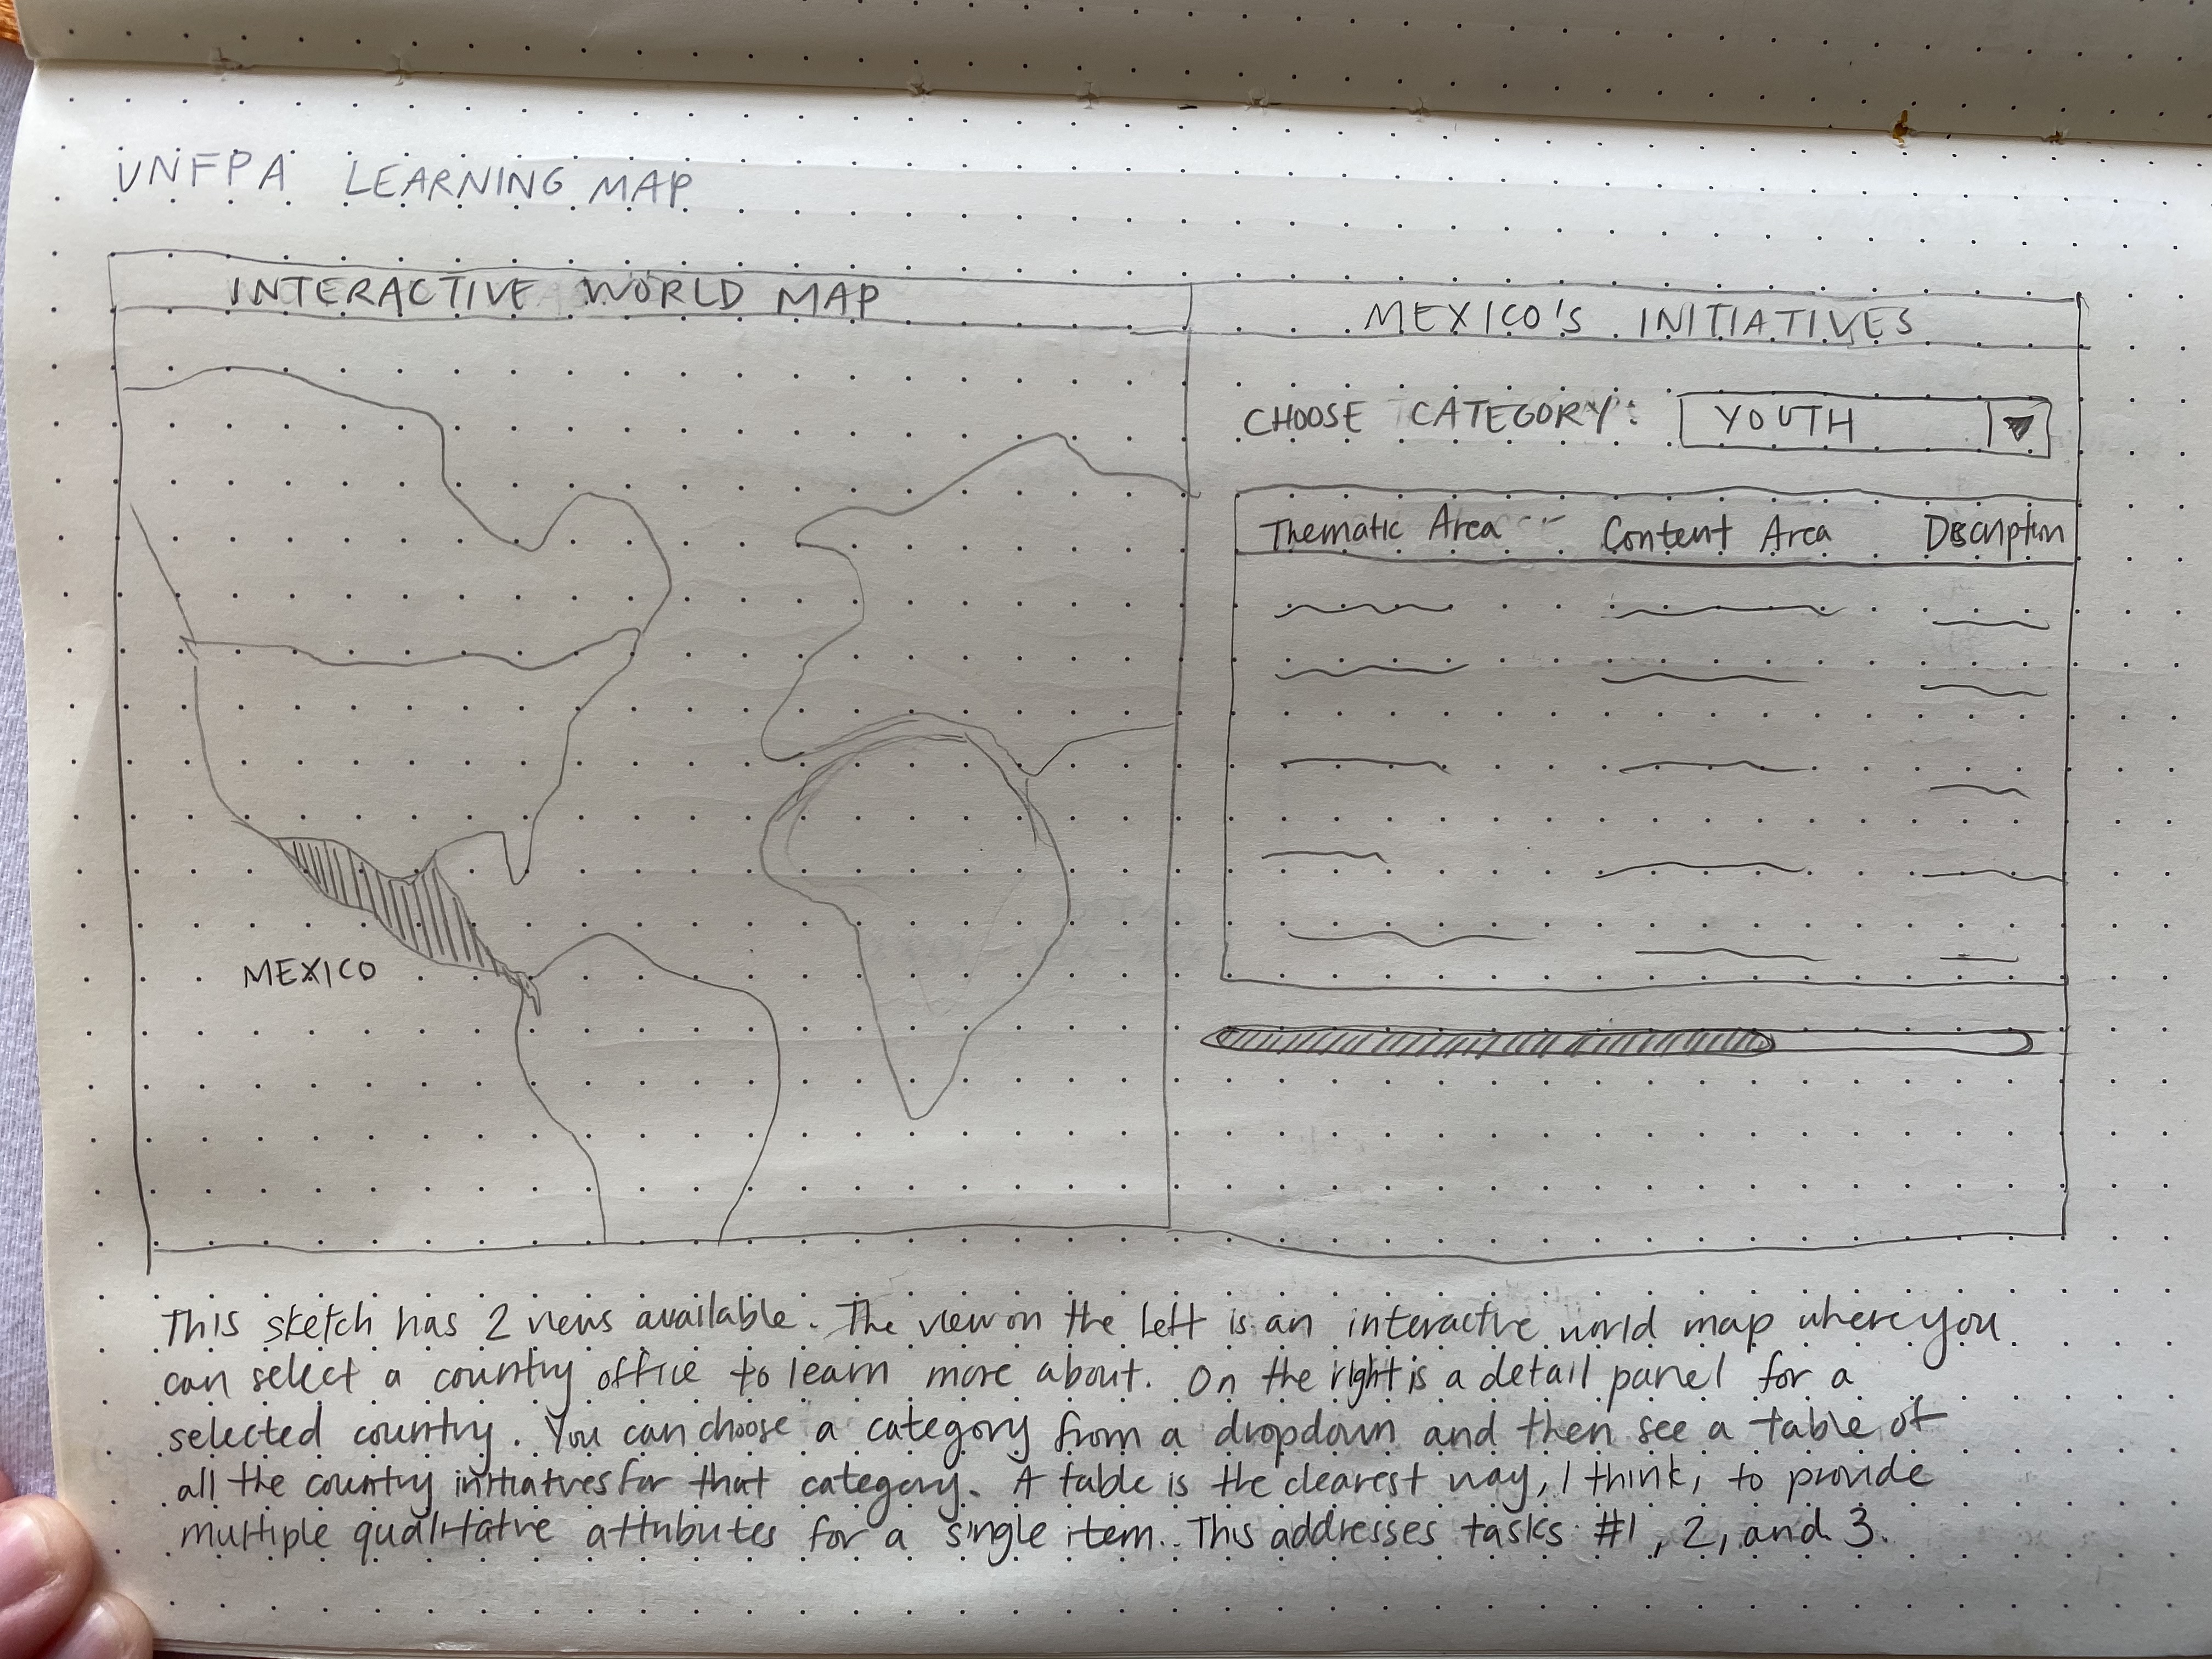 UNFPA LEARNING MAP
INTERACTIVE WORLD MAP
MEXICO'S INITIATIVES
CHOOSE CATEGORY: YOUTH
Thematic Area Content Area Description
MEXICO
This sketch has 2 views available. The view on the left is an interactive world map where you
can select a country office to learn more about. On the right is a detail panel for a
selected country. You can choose a category from a dropdown and then see a table of
all the country initiatives for that category. A table is the clearest way, I think, to provide
multiple qualitative attributes for a single item. This addresses tasks #1, 2, and 3.